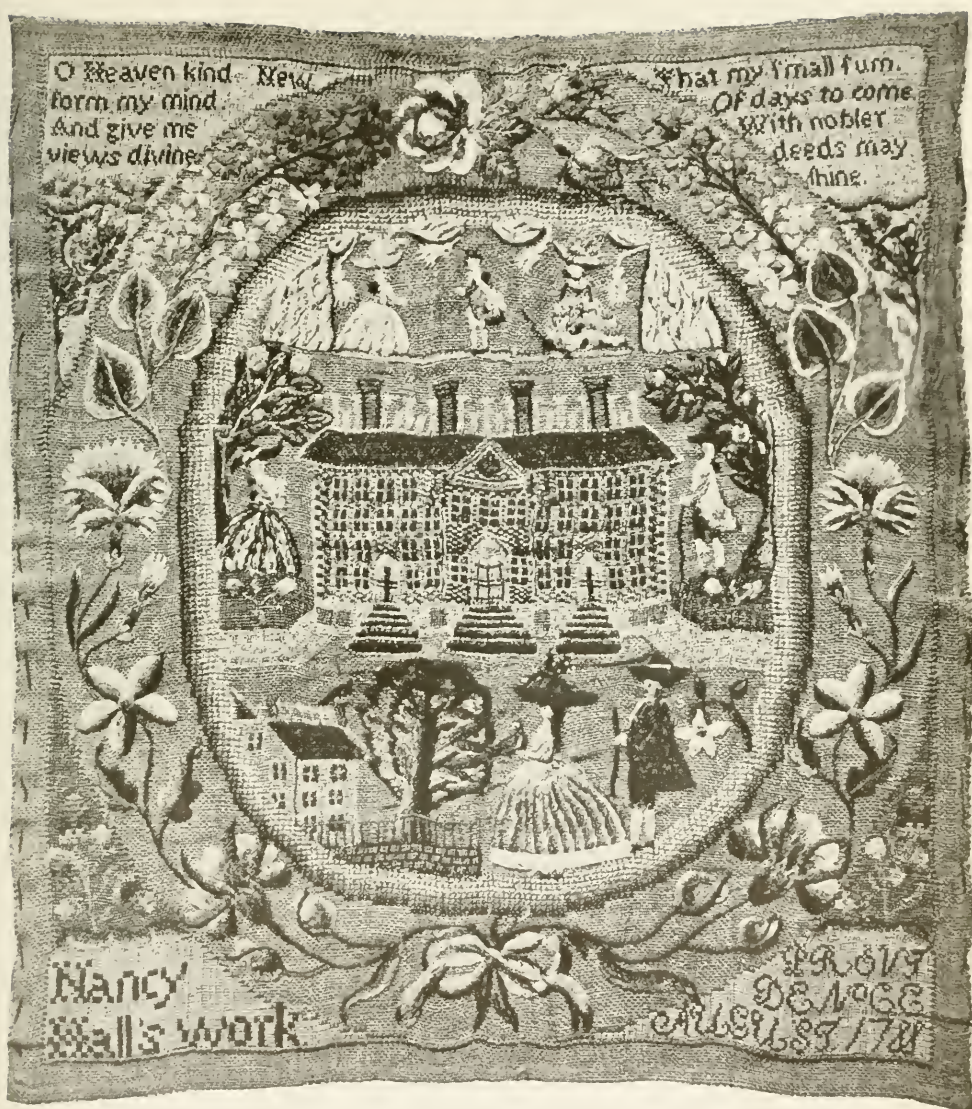 O Heaven kind New
form my mind
And give me
views divine
That my ſmall ſum.
Of days to come
With nobler
deeds may
ſhine.
Nancy
Hall's work
PROVI
DENCE
AUGUST